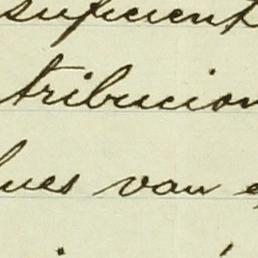 suficient
tribucion
lues van e